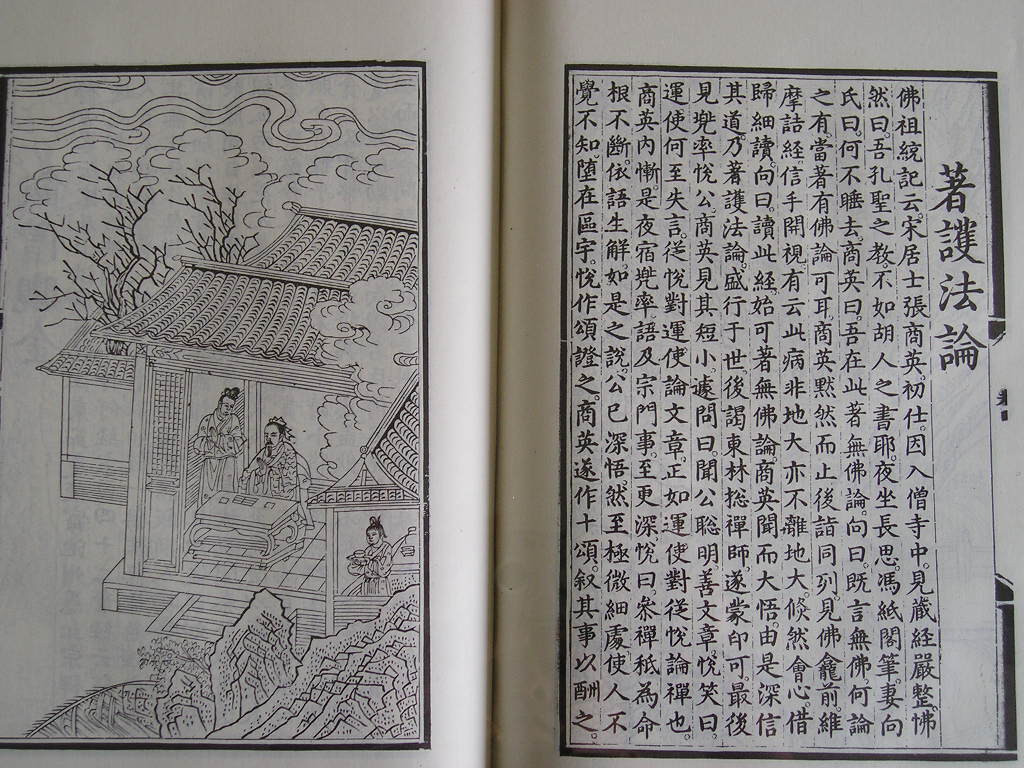 著護法論
佛祖統記云。宋居士張商英。初仕。因入僧寺中。見藏經嚴整。怫
然曰。吾孔聖之教。不如胡人之書耶。夜坐長思。馮紙閣筆。妻向
氏曰。何不睡去。商英曰。吾在此著無佛論。向曰。既言無佛。何論
之有。當著有佛論可耳。商英默然而止。後詣同列。見佛龕前。維
摩詰經。信手開視。有云此病非地大。亦不離地大。倏然會心。借
歸細讀。向曰。讀此經。始可著無佛論。商英聞而大悟。由是深信
其道。乃著護法論。盛行于世。後謁東林揔禪師。遂蒙印可。最後
見兠率悅公。商英見其短小。遽問曰。聞公聰明。善文章。悅笑曰。
運使何至失言。從悅對運使論文章。正如運使對從悅論禪也。
商英內慚。是夜宿兠率。語及宗門事。至更深。悅曰。叅禪秪為命
根不斷。依語生解。如是之說。公已深悟。然至極微細處。使人不
覺不知。墮在區宇。悅作頌證之。商英遂作十頌。叙其事以酬之。